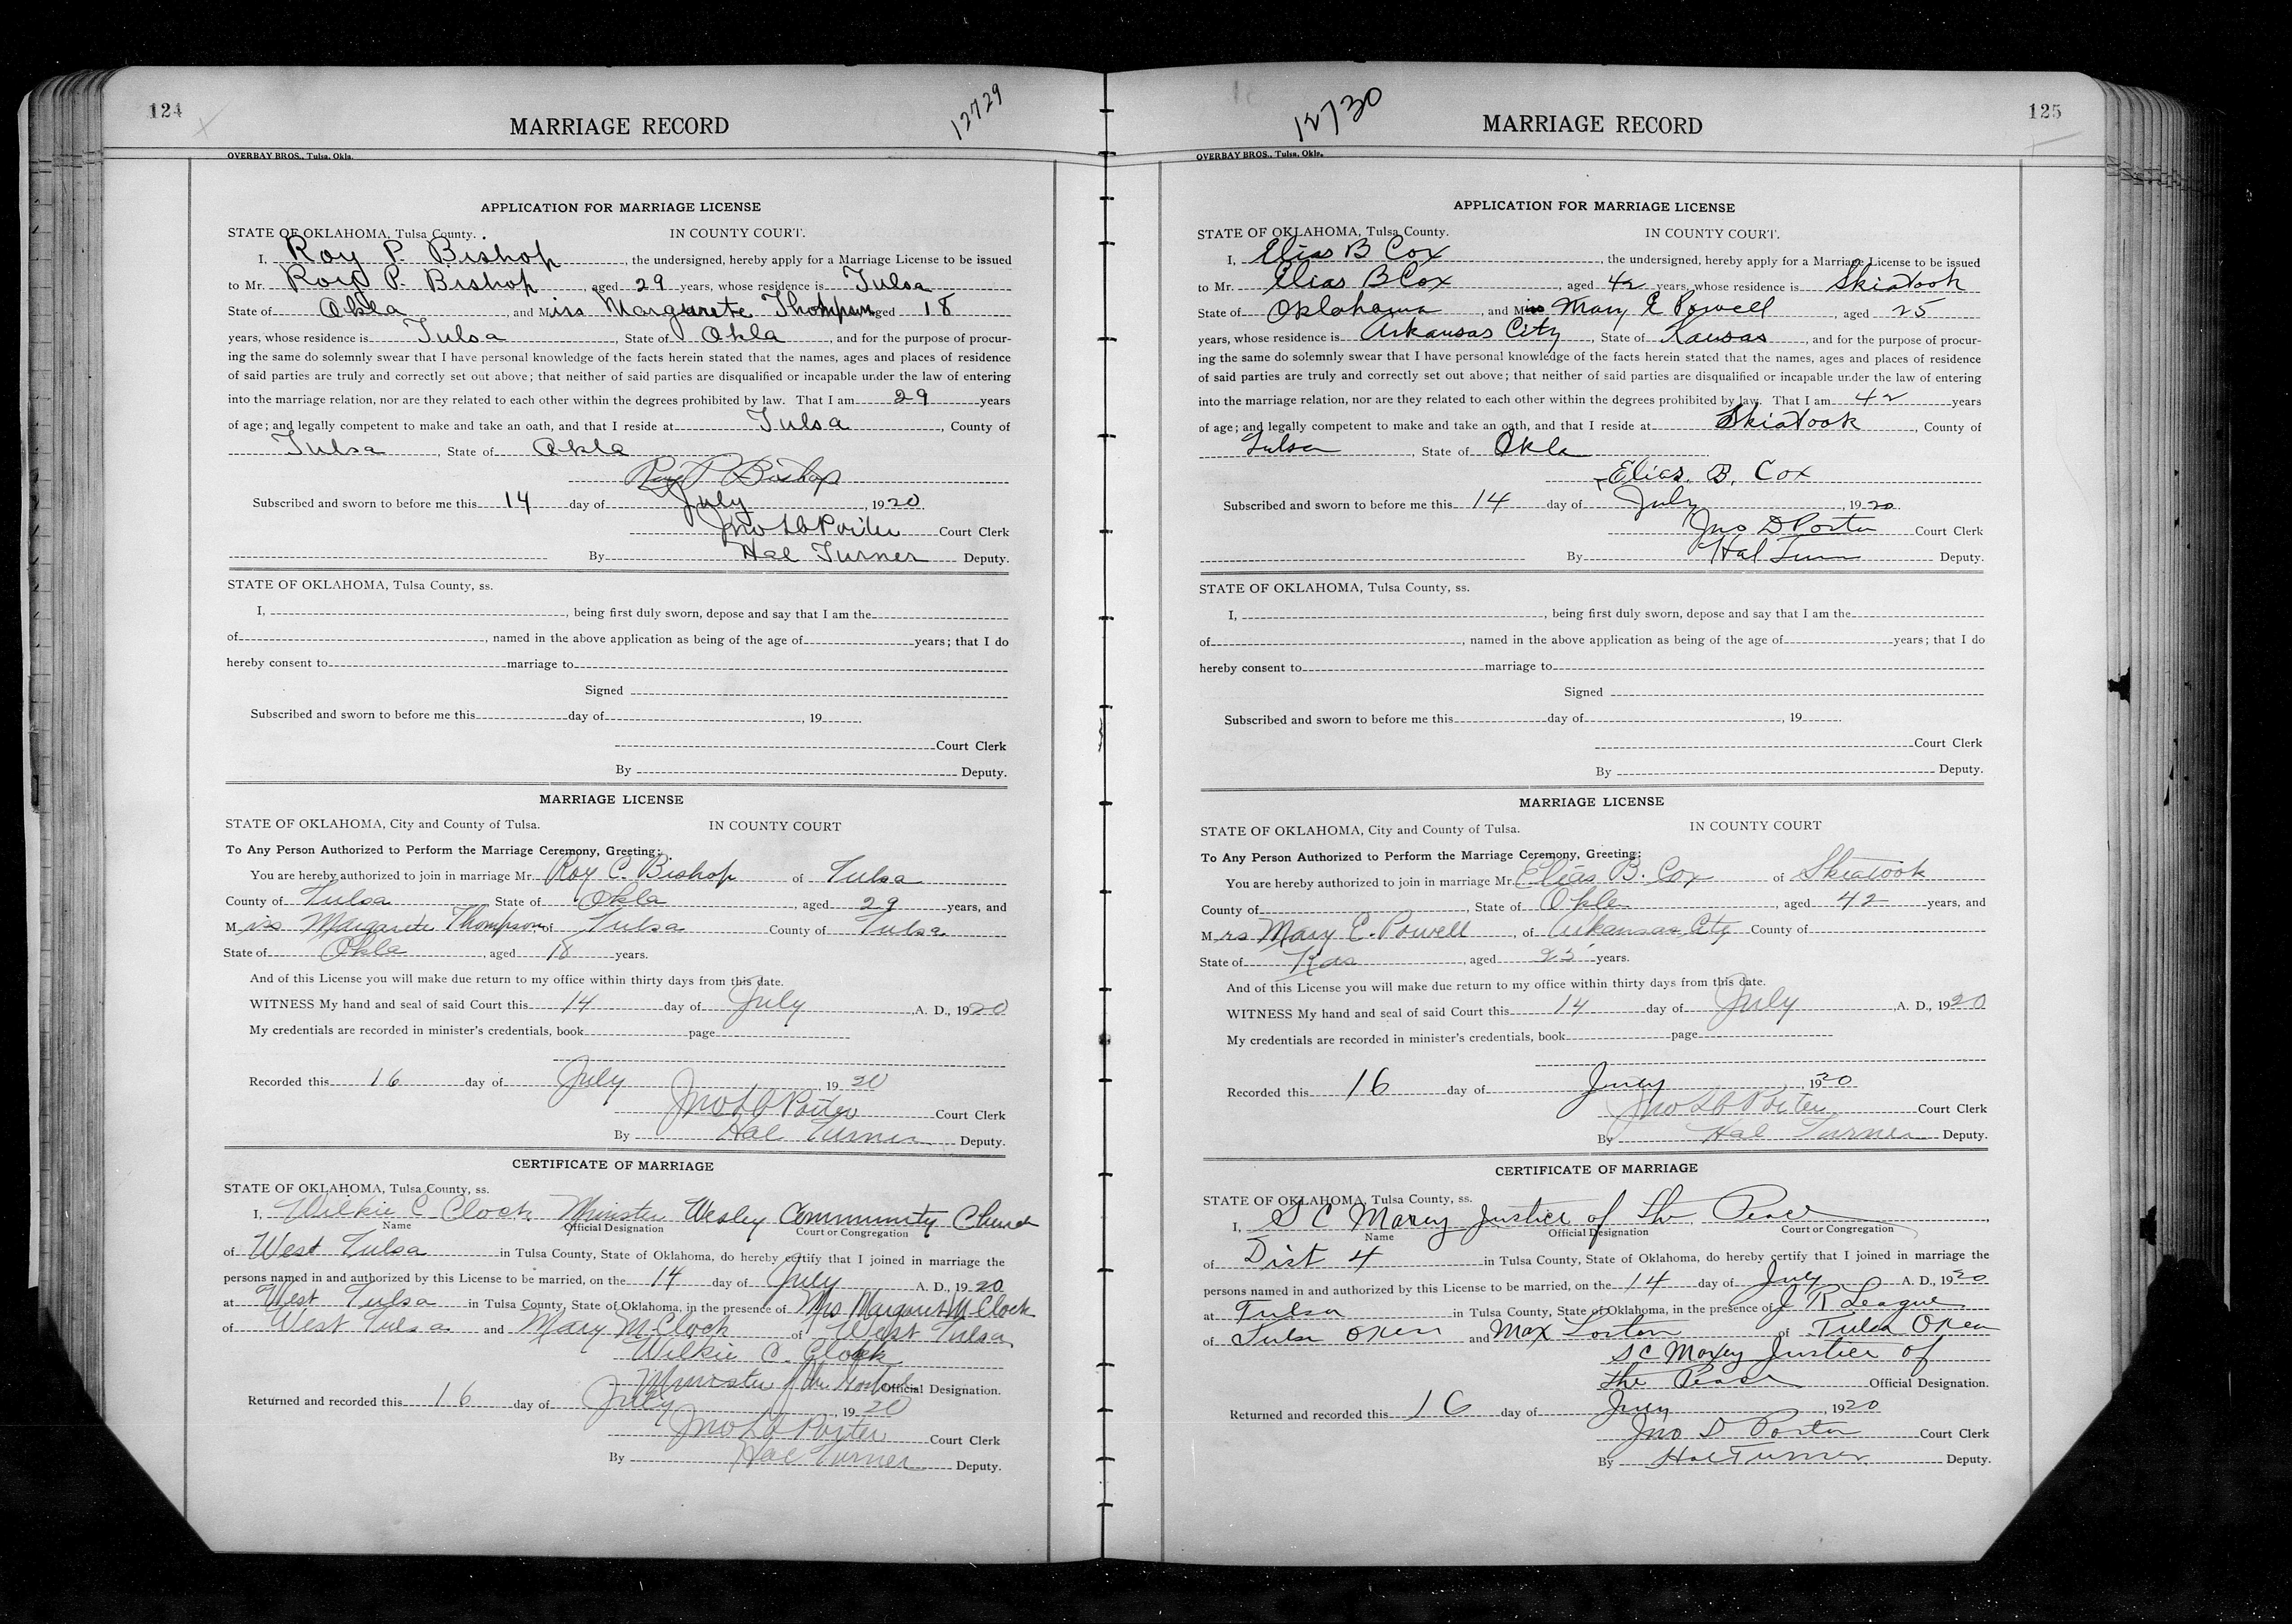 124
MARRIAGE RECORD
12729
OVERBAY BROS., Tulsa, Okla.
APPLICATION FOR MARRIAGE LICENSE
STATE OF OKLAHOMA, Tulsa County. IN COUNTY COURT.
I, Roy P. Bishop, the undersigned, hereby apply for a Marriage License to be issued
to Mr. Roy P. Bishop, aged 29 years, whose residence is Tulsa
State of Okla, and Miss Margarete Thompson aged 18
years, whose residence is Tulsa, State of Okla, and for the purpose of procur-
ing the same do solemnly swear that I have personal knowledge of the facts herein stated that the names, ages and places of residence
of said parties are truly and correctly set out above; that neither of said parties are disqualified or incapable under the law of entering
into the marriage relation, nor are they related to each other within the degrees prohibited by law. That I am 29 years
of age; and legally competent to make and take an oath, and that I reside at Tulsa, County of
Tulsa, State of Okla
Roy P Bishop
Subscribed and sworn to before me this 14 day of July, 1920.
Jno Porter Court Clerk
By Hal Turner Deputy.
STATE OF OKLAHOMA, Tulsa County, ss.
I, , being first duly sworn, depose and say that I am the
of , named in the above application as being of the age of years; that I do
hereby consent to marriage to
Signed
Subscribed and sworn to before me this day of , 19
Court Clerk
By Deputy.
MARRIAGE LICENSE
STATE OF OKLAHOMA, City and County of Tulsa. IN COUNTY COURT
To Any Person Authorized to Perform the Marriage Ceremony, Greeting:
You are hereby authorized to join in marriage Mr. Roy C. Bishop of Tulsa
County of Tulsa State of Okla, aged 29 years, and
Miss Margarete Thompson of Tulsa County of Tulsa
State of Okla, aged 18 years.
And of this License you will make due return to my office within thirty days from this date.
WITNESS My hand and seal of said Court this 14 day of July A. D., 1920
My credentials are recorded in minister's credentials, book page
Recorded this 16 day of July, 1920
Jno Porter Court Clerk
By Hal Turner Deputy.
CERTIFICATE OF MARRIAGE
STATE OF OKLAHOMA, Tulsa County, ss.
I, Wilkie C Clock, Minister Wesley Community Church
Name Official Designation Court or Congregation
of West Tulsa in Tulsa County, State of Oklahoma, do hereby certify that I joined in marriage the
persons named in and authorized by this License to be married, on the 14 day of July A. D., 1920
at West Tulsa in Tulsa County, State of Oklahoma, in the presence of Mrs Margaret M Clock
of West Tulsa and Mary M Clock of West Tulsa
Wilkie C. Clock
Minister of the Gospel Official Designation.
Returned and recorded this 16 day of July, 1920
Jno Porter Court Clerk
By Hal Turner Deputy.
125
MARRIAGE RECORD
12730
OVERBAY BROS., Tulsa, Okla.
APPLICATION FOR MARRIAGE LICENSE
STATE OF OKLAHOMA, Tulsa County. IN COUNTY COURT.
I, Elias B Cox, the undersigned, hereby apply for a Marriage License to be issued
to Mr. Elias B Cox, aged 42 years, whose residence is Skiatook
State of Oklahoma, and M Mary E Powell, aged 25
years, whose residence is Arkansas City, State of Kansas, and for the purpose of procur-
ing the same do solemnly swear that I have personal knowledge of the facts herein stated that the names, ages and places of residence
of said parties are truly and correctly set out above; that neither of said parties are disqualified or incapable under the law of entering
into the marriage relation, nor are they related to each other within the degrees prohibited by law. That I am 42 years
of age; and legally competent to make and take an oath, and that I reside at Skiatook, County of
Tulsa, State of Okla
Elias. B. Cox
Subscribed and sworn to before me this 14 day of July, 1920.
Jno D Porter Court Clerk
By Hal Turner Deputy.
STATE OF OKLAHOMA, Tulsa County, ss.
I, , being first duly sworn, depose and say that I am the
of , named in the above application as being of the age of years; that I do
hereby consent to marriage to
Signed
Subscribed and sworn to before me this day of , 19
Court Clerk
By Deputy.
MARRIAGE LICENSE
STATE OF OKLAHOMA, City and County of Tulsa. IN COUNTY COURT
To Any Person Authorized to Perform the Marriage Ceremony, Greeting:
You are hereby authorized to join in marriage Mr. Elias B. Cox of Skiatook
County of , State of Okla, aged 42 years, and
Mrs Mary E. Powell, of Arkansas City County of
State of Kas, aged 25 years.
And of this License you will make due return to my office within thirty days from this date.
WITNESS My hand and seal of said Court this 14 day of July A. D., 1920
My credentials are recorded in minister's credentials, book page
Recorded this 16 day of July, 1920
Jno Porter Court Clerk
By Hal Turner Deputy.
CERTIFICATE OF MARRIAGE
STATE OF OKLAHOMA, Tulsa County, ss.
I, S C Maxey Justice of the Peace
Name Official Designation Court or Congregation
of Dist 4 in Tulsa County, State of Oklahoma, do hereby certify that I joined in marriage the
persons named in and authorized by this License to be married, on the 14 day of July A. D., 1920
at Tulsa in Tulsa County, State of Oklahoma, in the presence of J R League
of Tulsa Okla and Max Lorton of Tulsa Okla
S C Maxey Justice of
the Peace Official Designation.
Returned and recorded this 16 day of July, 1920
Jno D Porter Court Clerk
By Hal Turner Deputy.